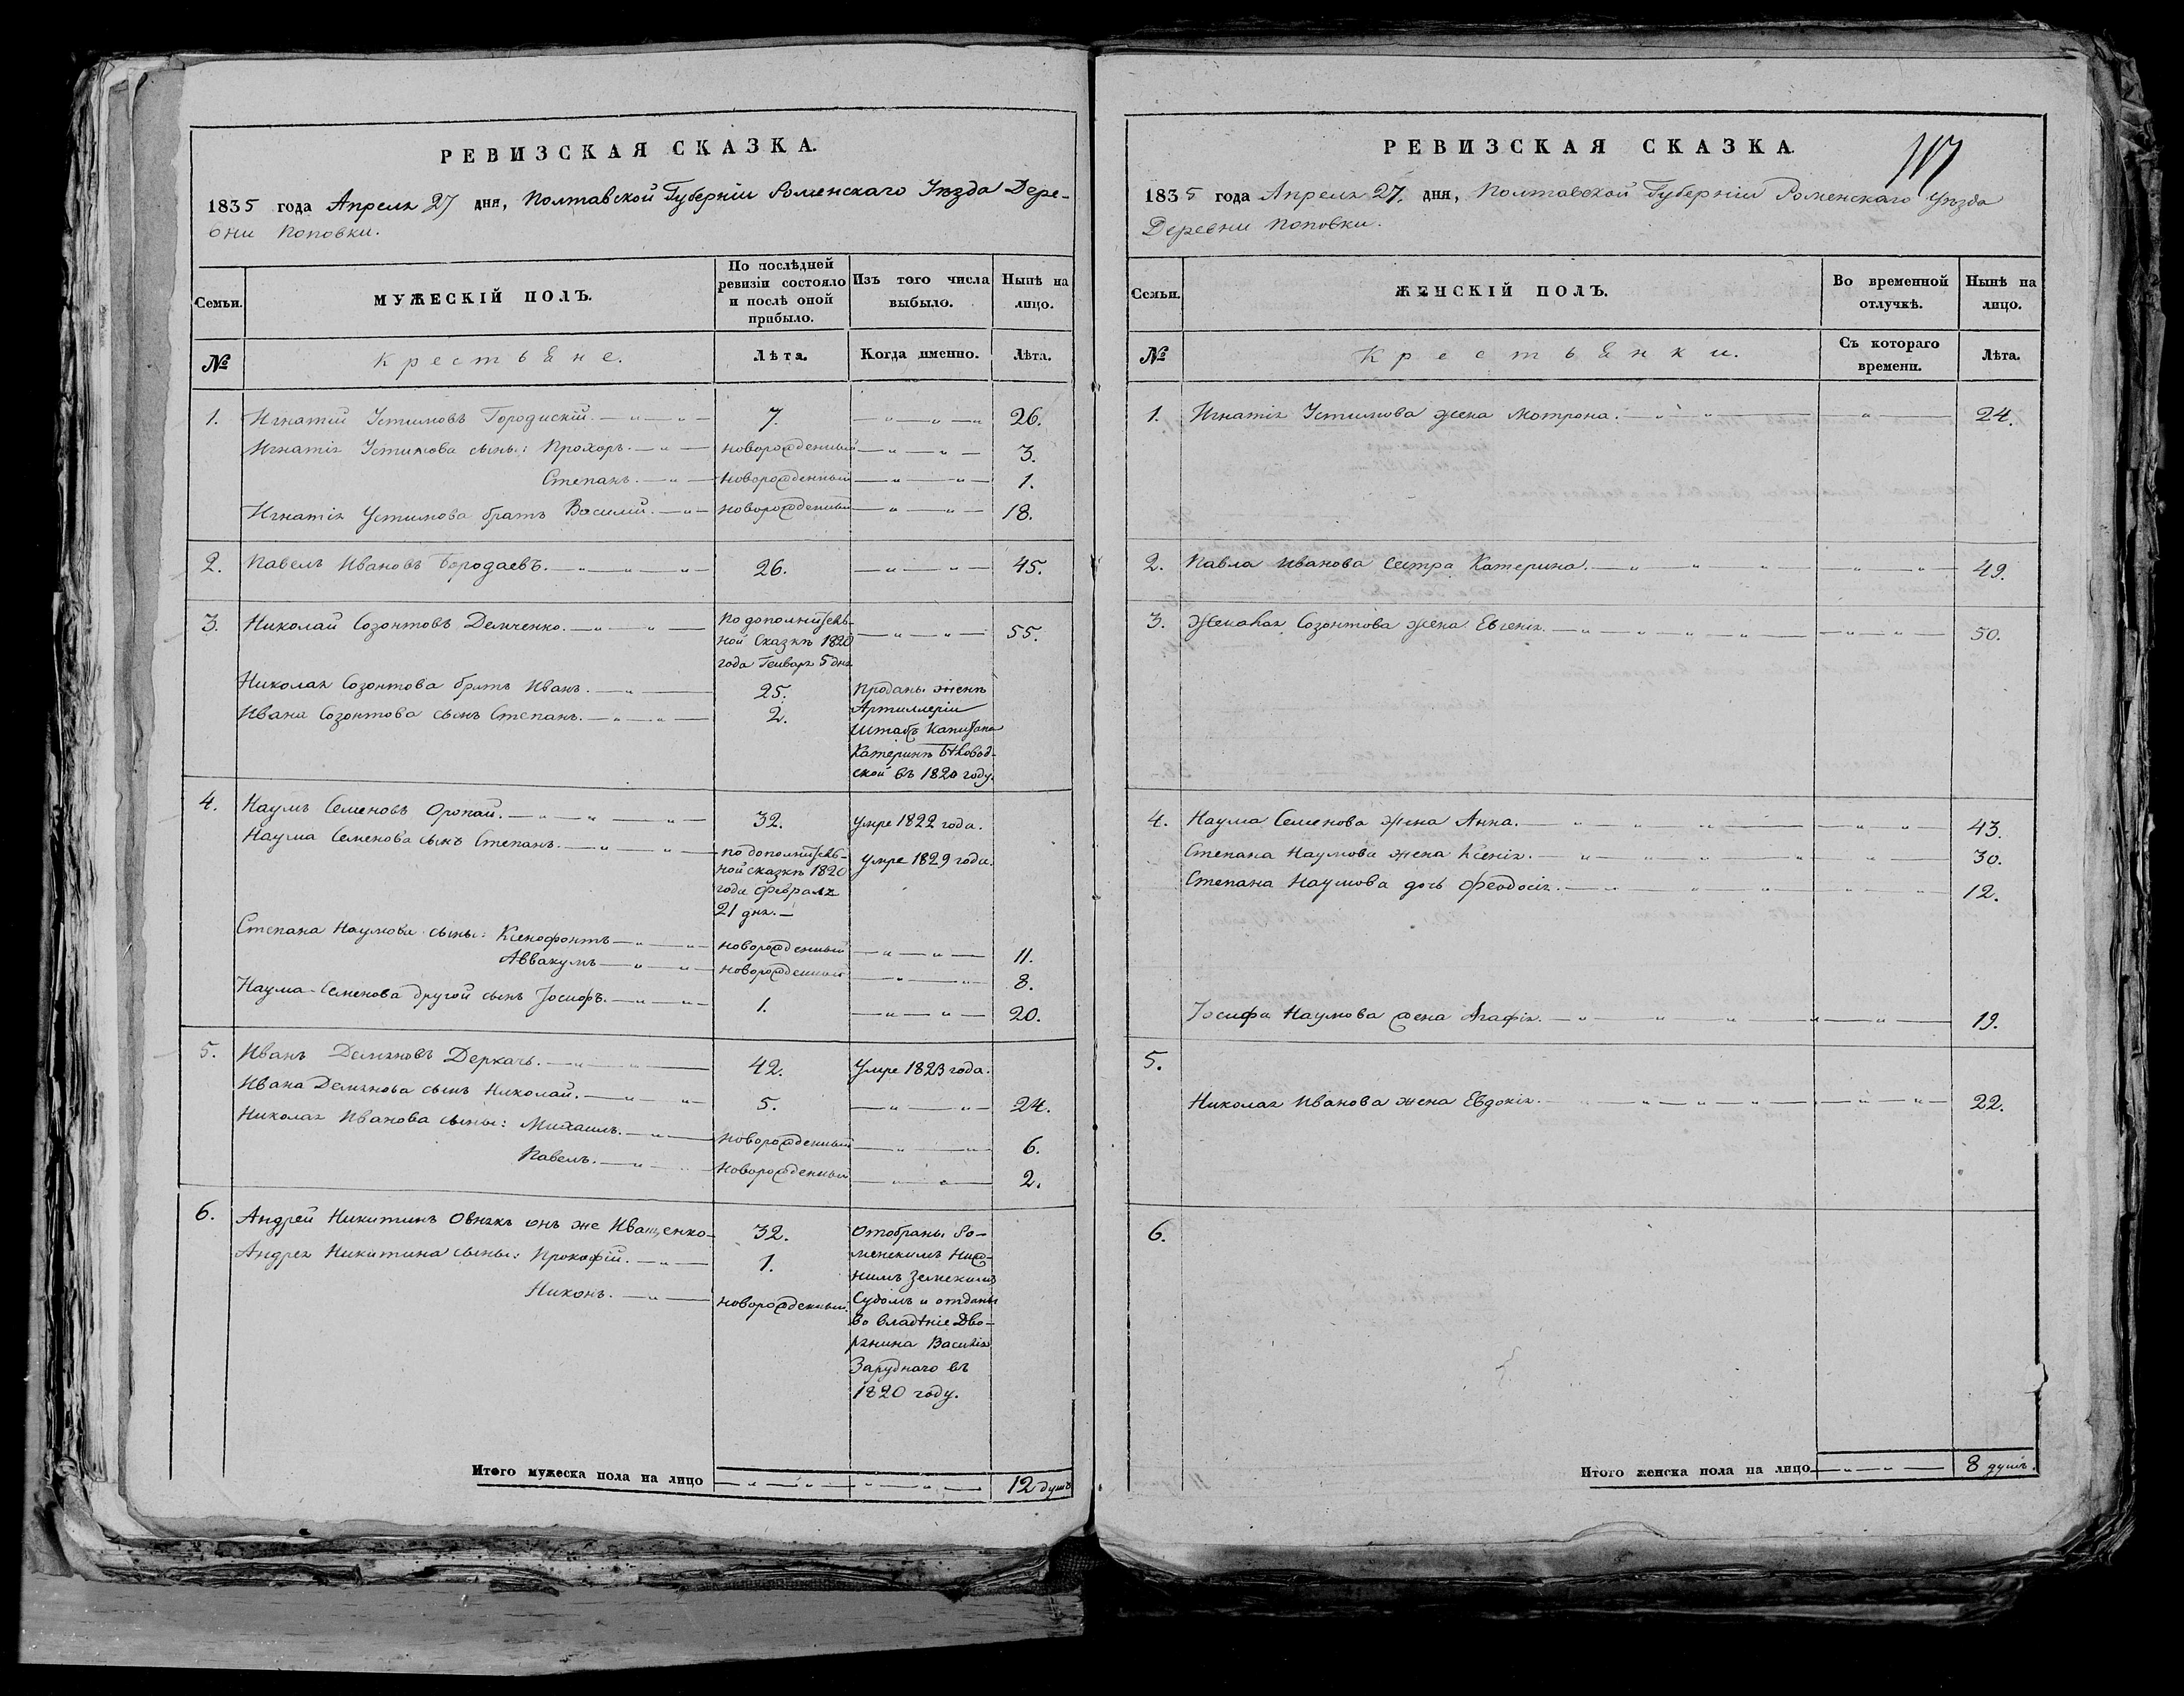 РЕВИЗСКАЯ СКАЗКА.
1835 года Апреля 27 дня, Полтавской Губерніи Роменскаго Уѣзда Дере-
вни Поповки.
Семьи. МУЖЕСКІЙ ПОЛЪ. По послѣдней ревизіи состояло и послѣ оной прибыло. Изъ того числа выбыло. Нынѣ на лицо.
№ Крестьяне. Лѣта. Когда именно. Лѣта.
1. Игнатій Устимовъ Городискій. — „ — „ — 7. — „ — „ — „ 26.
Игнатія Устимова сыны: Прохоръ. — „ — новорожденный — „ — „ — 3.
Степанъ. — „ — новорожденный — „ — „ — 1.
Игнатія Устимова братъ Василій. — „ — новорожденный — „ — „ — 18.
2. Павелъ Ивановъ Бородаевъ. — „ — „ — „ — 26. — „ — „ — 45.
3. Николай Созонтовъ Демченко. — „ — „ — По дополнитель-
ной Сказкѣ 1820 — „ — „ — 55.
года Генваря 5 дня.
Николая Созонтова братъ Иванъ. — „ — 25. Проданы женѣ
Ивана Созонтова сынъ Степанъ. — „ — „ — 2. Артиллеріи
Штабъ Капитана
Катеринѣ
ской въ 1820 году.
4. Наумъ Семеновъ Оропай. — „ — „ — „ — 32. умре 1822 года.
Наума Семенова сынъ Степанъ. — „ — „ — по дополнитель-
ной сказкѣ 1820 умре 1829 года.
года Февраля
21 дня. —
Степана Наумова сыны: Ксенофонтъ — „ — „ — новорожденный — „ — „ — 11.
Аввакумъ — „ — „ — новорожденный — „ — „ — 8.
Наума Семенова другой сынъ Іосифъ. — „ — „ — 1. — „ — „ — 20.
5. Иванъ Демяновъ Деркачь. — „ — 42. Умре 1823 года.
Ивана Демянова сынъ Николай. — „ — „ 5. — „ — „ — 24.
Николая Иванова сыны: Михаилъ. — „ — новорожденный — „ — „ — 6.
Павелъ. — „ — новорожденный — „ — „ — 2.
6. Андрей Никитинъ Овнякъ онъ же Иващенко — 32. Отобраны Ро-
Андрея Никитина сыны: Прокофій. — „ — 1. менскимъ Ниж-
нимъ Земскимъ
Никонъ. — „ — новорожденный. Судомъ и отданы
во владѣніе Дво-
рянина Василія
Заруднаго въ
1820 году.
Итого мужеска пола на лицо — „ — „ — „ — „ — 12 душъ
117
РЕВИЗСКАЯ СКАЗКА.
1835 года Апреля 27. дня, Полтавской Губерніи Роменскаго Уѣзда
Деревни Поповки.
Семьи. ЖЕНСКІЙ ПОЛЪ. Во временной отлучкѣ. Нынѣ на лицо.
№ Крестьянки. Съ котораго времени. Лѣта.
1. Игнатія Устимова жена Мотрона. — „ — „ — „ — 24.
2. Павла Иванова сестра Катерина. — „ — „ — „ — „ — „ — 49.
3. Созонтова жена Евгенія. — „ — „ — „ — „ — „ — „ — 50.
4. Наума Семенова жена Анна. — „ — „ — „ — „ — „ — 43.
Степана Наумова жена Ксенія. — „ — „ — „ — „ — „ — 30.
Степана Наумова дочь Феодосія. — „ — „ — „ — „ — „ — 12.
Іосифа Наумова жена Агафія. — „ — „ — „ — „ — „ — 19.
5.
Николая Иванова жена Евдокія. — „ — „ — „ — „ — „ — „ 22.
6.
Итого женска пола на лицо — „ — „ — 8 душъ.